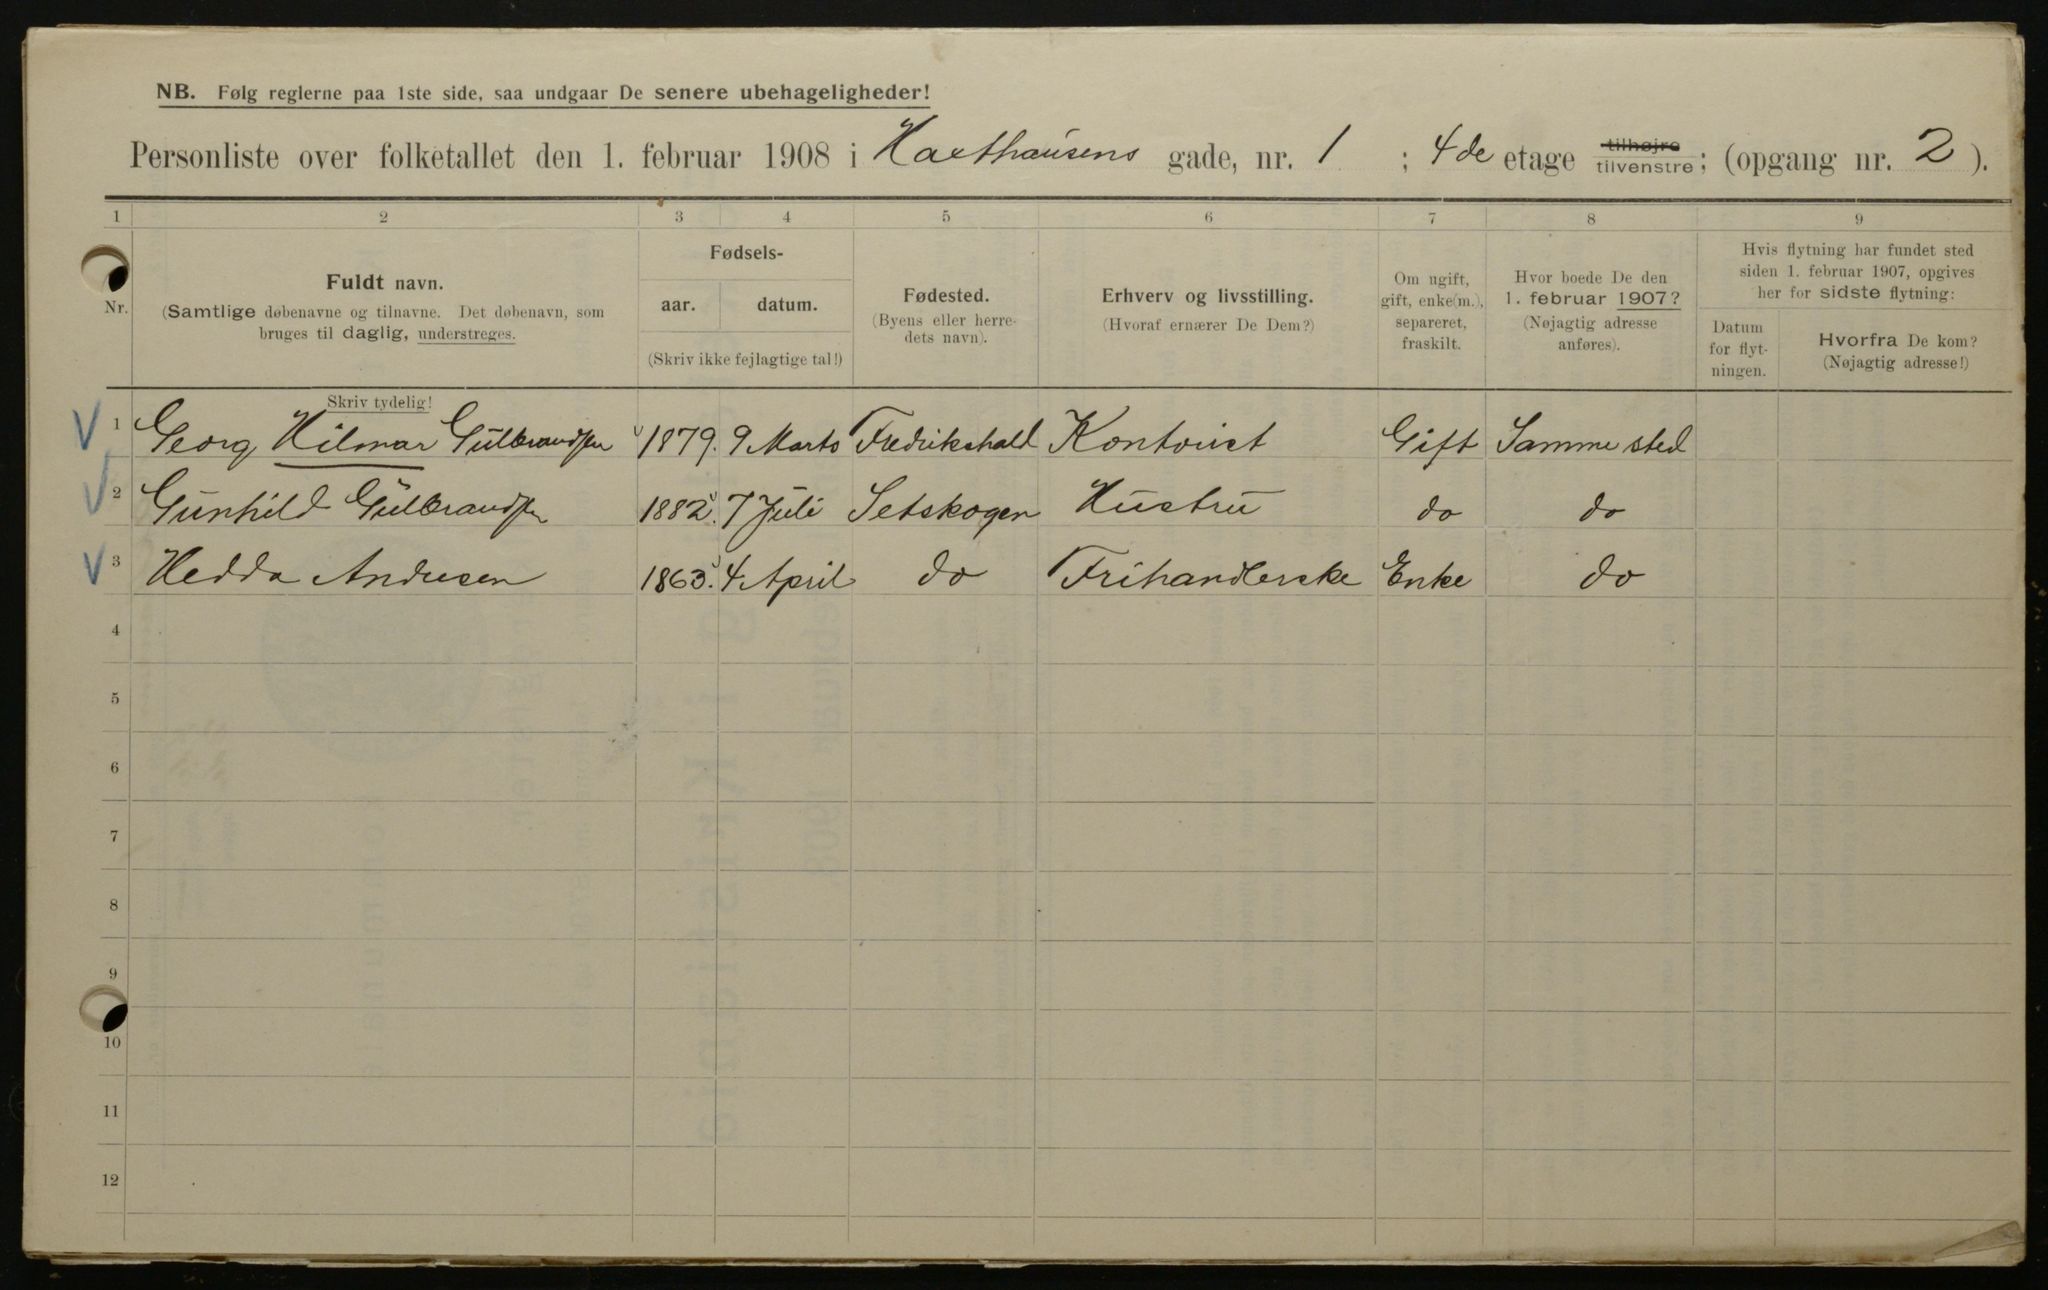 NB. Følg reglerne paa 1ste side, saa undgaar De senere ubehageligheder!
Personliste over folketallet den 1. februar 1908 i Haxthausens gade, nr. 1 ; 4de etage tilhøjre tilvenstre; (opgang nr. 2 ).
1 2 3 4 5 6 7 8 9
Nr.
Fuldt navn.
(Samtlige døbenavne og tilnavne. Det døbenavn, som
bruges til daglig, understreges.
Fødsels-
aar. datum.
(Skriv ikke fejlagtige tal!)
Fødested.
(Byens eller herre-
dets navn).
Erhverv og livsstilling.
(Hvoraf ernærer De Dem?)
Om ugift,
gift, enke(m.),
separeret,
fraskilt.
Hvor boede De den
1. februar 1907?
(Nøjagtig adresse
anføres).
Hvis flytning har fundet sted
siden 1. februar 1907, opgives
her for sidste flytning:
Datum
for flyt-
ningen.
Hvorfra De kom?
(Nøjagtig adresse!)
Skriv tydelig!
V 1 Georg Hilmar Gulbrandsen 1879. 9 Marts Fredrikshald Kontorist Gift Samme sted
V 2 Gunhild Gulbrandsen 1882. 7 Juli Setskogen Hustru do do
V 3 Hedda Andresen 1863. 4 April do Frihandlerske Enke do
4
5
6
7
8
9
10
11
12